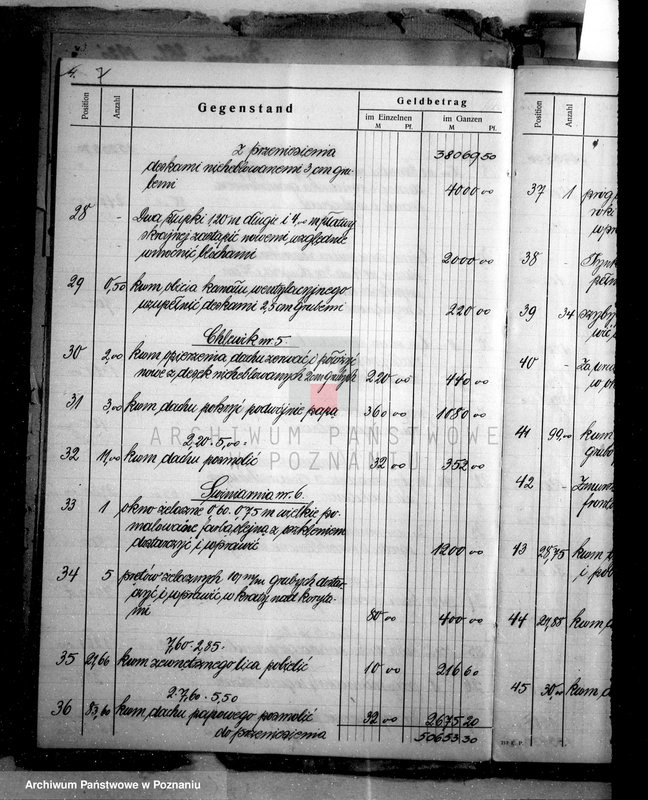 4. 7
Position Anzahl Gegenstand Geldbetrag
im Einzelnen im Ganzen
M Pf. M Pf.
Z przeniesienia 38069,50
deskami nieheblowanemi 3 cm gru-
bemi 4000 00
28 - Dwa 120 m długie i 4,00 m
zastąpić nowemi względnie
wzmocnić blochami 2000 00
29 0,50 kum. obicia kanału wentylacyjnego
uzupełnić deskami 2,5 cm grubemi 220 00
Chlewik nr. 5.
30 2,00 kum. dachu zerwać i położyć
nowe z desek nieheblowanych 2 cm grubych 220 00 440 00
31 3,00 kum. dachu pokryć podwójnie papą 360 00 1080 00
2,20 · 5,00 ·
32 11,00 kum. dachu posmolić 32 00 352 00
Świniarnia nr. 6.
33 1 okno żelazne 0,60 · 0,75 m wielkie po-
malowane farbą olejną z oszkleniem
dostarczyć i wprawić 1200 00
34 5 prętów żelaznych 10 m/m grubych dostar-
czyć i wprawić w kraty nad koryta-
mi 80 00 400 00
7,60 · 2,85 ·
35 21,66 kum. zewnętrznego lica pobielić 10 00 216 60
2 · 7,60 · 5,50
36 83,60 kum. dachu papowego posmolić 32 00 2675 20
do przeniesienia 50653 30
Position Anzahl
37 1
38
39 34
40
41 99,00 kum.
42
43 28,75 kum.
i
44 21,85 kum.
45 30,00 kum.
ARCHIWUM PAŃSTWOWE
W POZNANIU
Archiwum Państwowe w Poznaniu